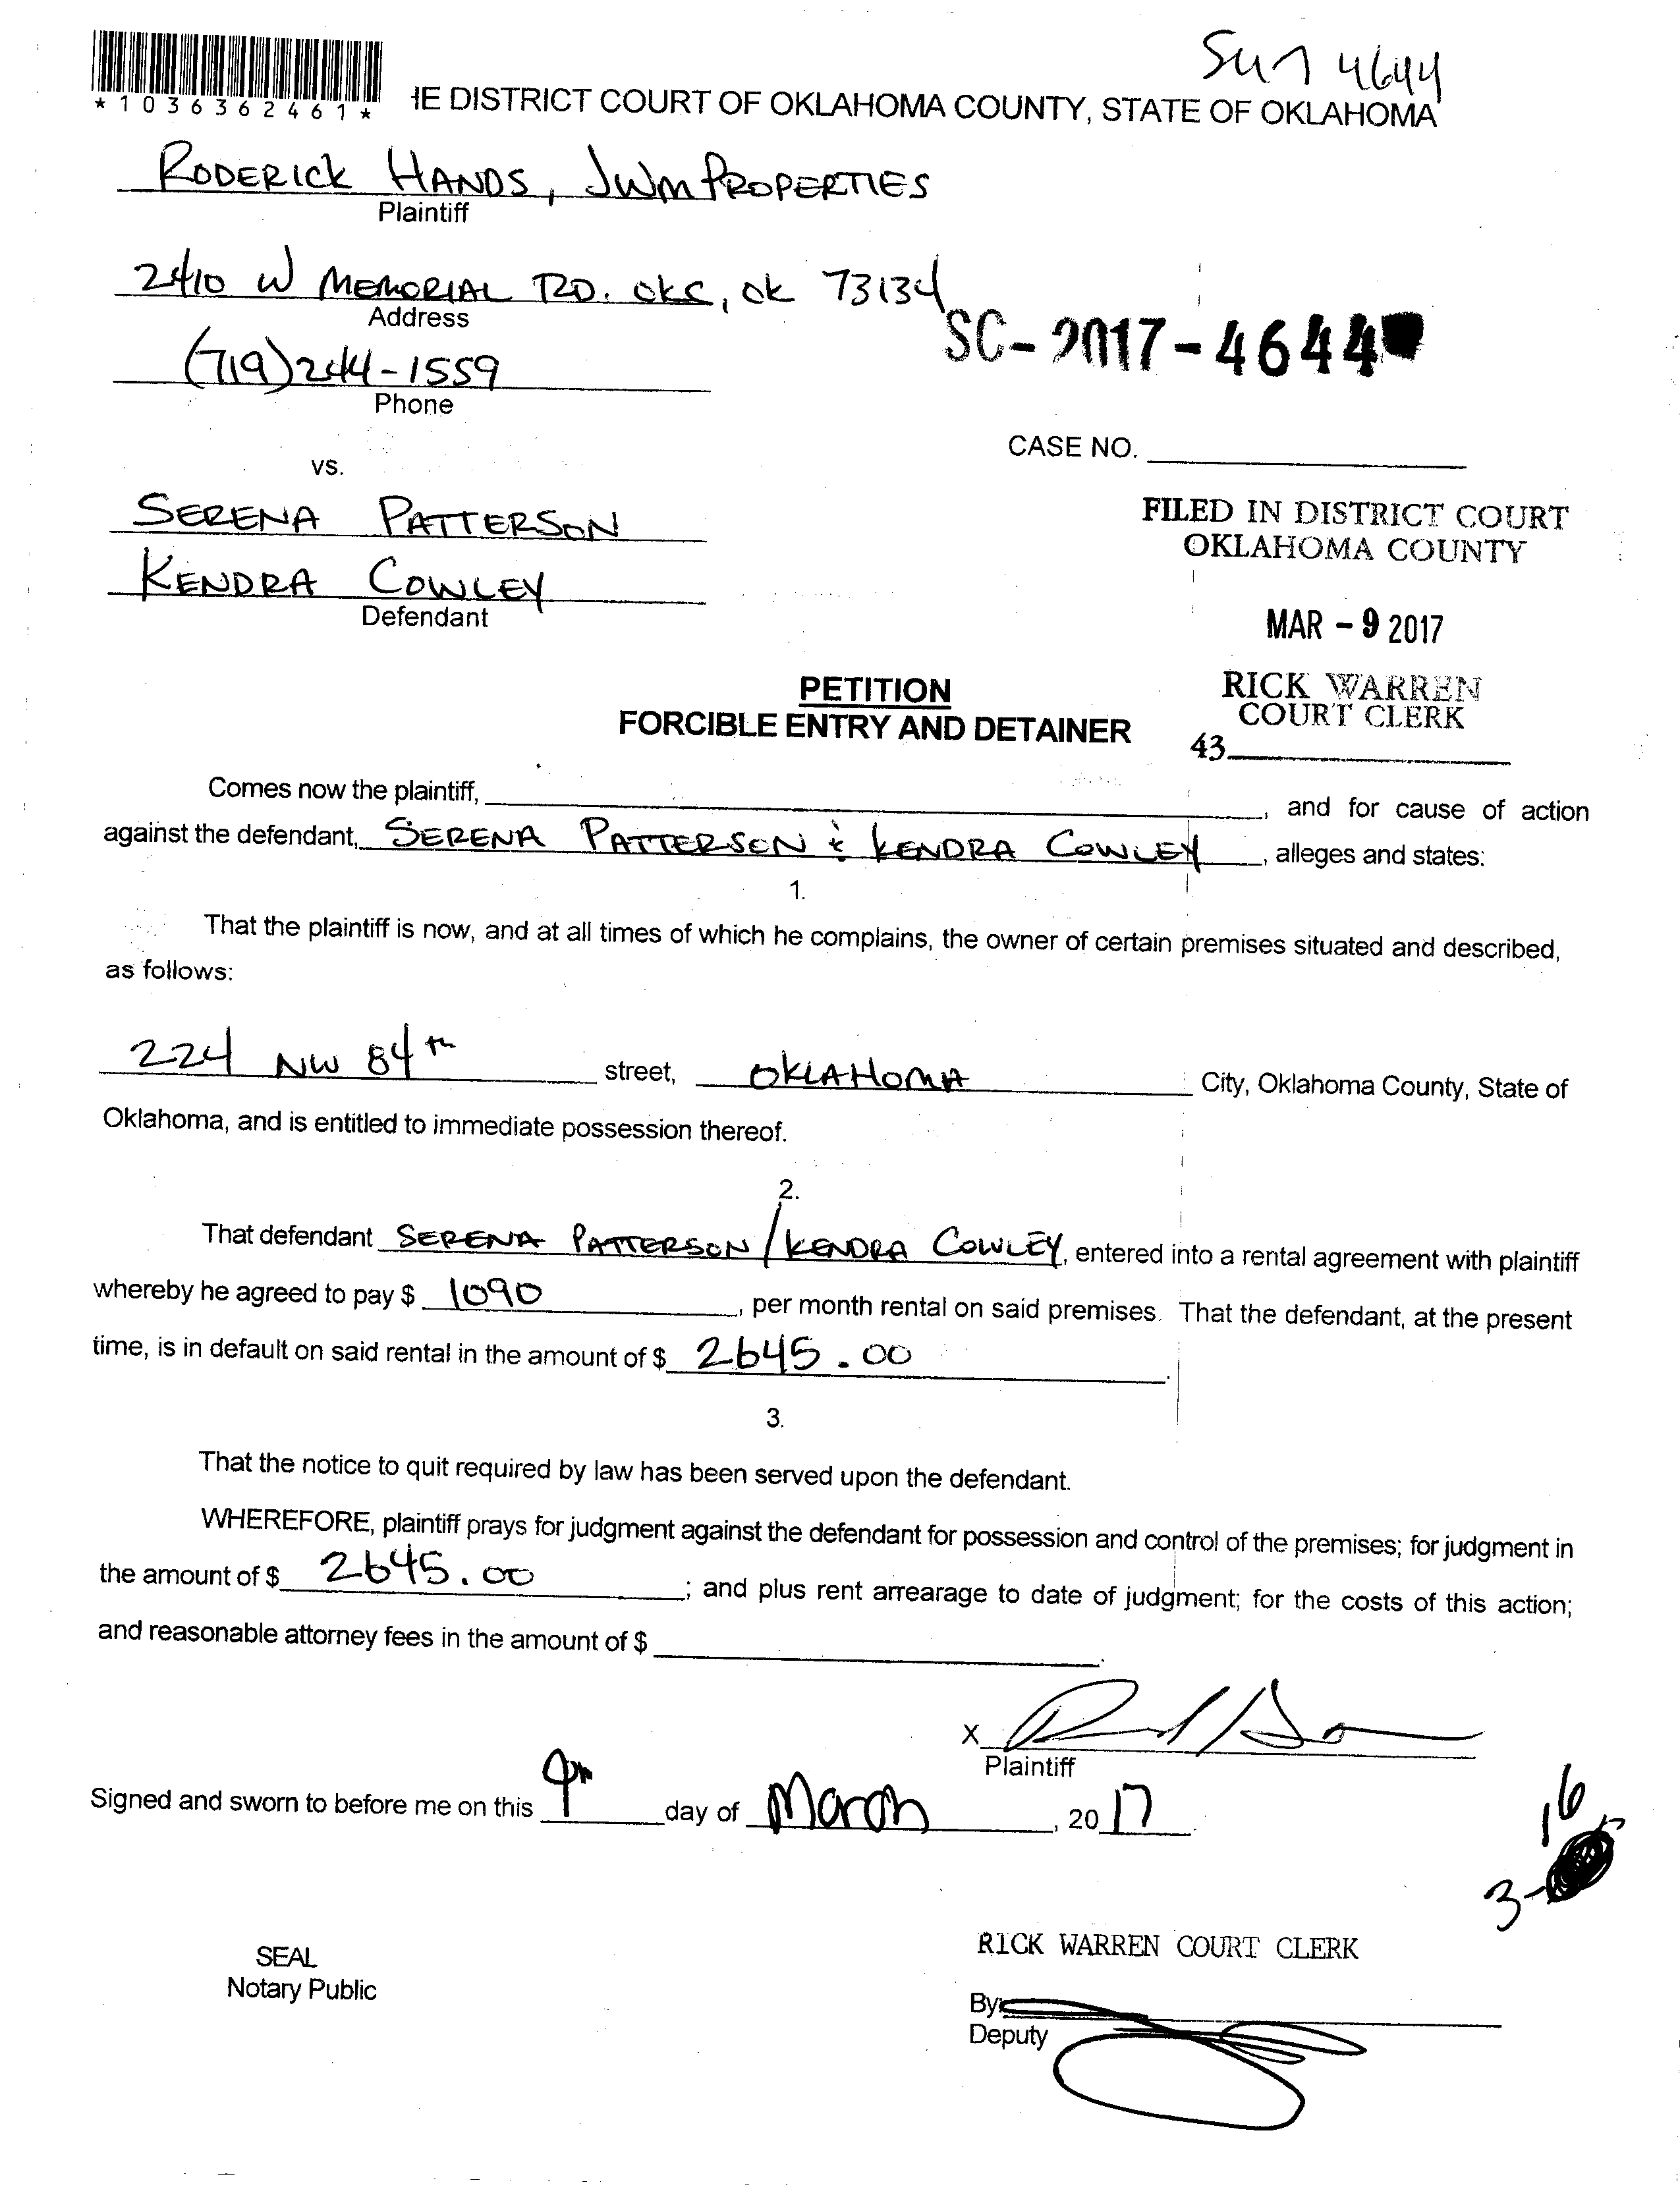 4644
*1036362461*
IE DISTRICT COURT OF OKLAHOMA COUNTY, STATE OF OKLAHOMA
RODERICK HANDS, JWM PROPERTIES
Plaintiff
2410 W MEMORIAL RD. OKC, OK 73134
Address
SC-2017-4644
(719)244-1559
Phone
CASE NO.
vs.
SERENA PATTERSON
FILED IN DISTRICT COURT
OKLAHOMA COUNTY
KENDRA COWLEY
Defendant
MAR - 9 2017
PETITION
RICK WARREN
COURT CLERK
FORCIBLE ENTRY AND DETAINER
43
Comes now the plaintiff, , and for cause of action
against the defendant, SERENA PATTERSON & KENDRA COWLEY, alleges and states:
1.
That the plaintiff is now, and at all times of which he complains, the owner of certain premises situated and described,
as follows:
224 NW 84th street, OKLAHOMA City, Oklahoma County, State of
Oklahoma, and is entitled to immediate possession thereof.
2.
That defendant SERENA PATTERSON / KENDRA COWLEY, entered into a rental agreement with plaintiff
whereby he agreed to pay $ 1090, per month rental on said premises. That the defendant, at the present
time, is in default on said rental in the amount of $ 2645.00.
3.
That the notice to quit required by law has been served upon the defendant.
WHEREFORE, plaintiff prays for judgment against the defendant for possession and control of the premises; for judgment in
the amount of $ 2645.00; and plus rent arrearage to date of judgment; for the costs of this action;
and reasonable attorney fees in the amount of $ .
X
Plaintiff
Signed and sworn to before me on this 9th day of March, 20 17.
16
3-
RICK WARREN COURT CLERK
SEAL
Notary Public
By:
Deputy